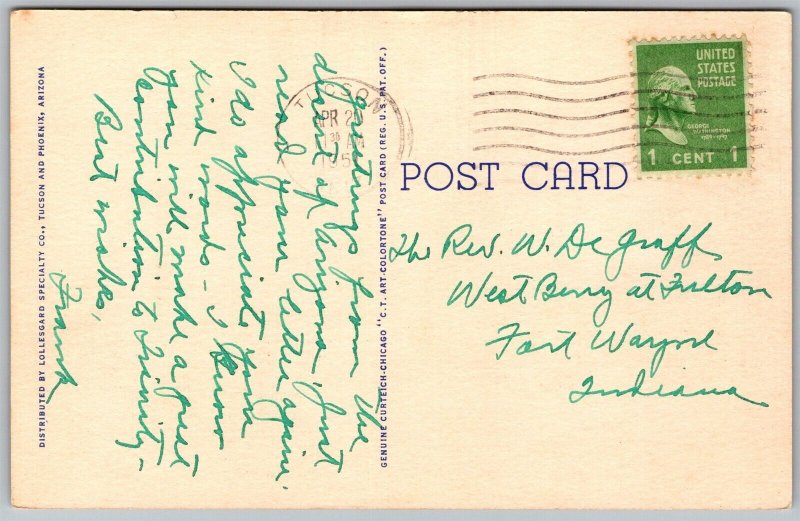 Greetings from the
desert of Arizona. Just
read your letter again.
I do appreciate your
kind words - I know
you will make a great
contribution to Trinity -
Best wishes,
Frank
DISTRIBUTED BY LOLLESGARD SPECIALTY CO., TUCSON AND PHOENIX, ARIZONA
GENUINE CURTEICH-CHICAGO "C.T. ART-COLORTONE" POST CARD (REG. U.S. PAT. OFF.)
TUCSON
APR 2
30 AM
195
UNITED
STATES
POSTAGE
GEORGE
WASHINGTON
1789-1797
1 CENT 1
POST CARD
The Rev. W. De Graff
West Berry at Fulton
Fort Wayne
Indiana